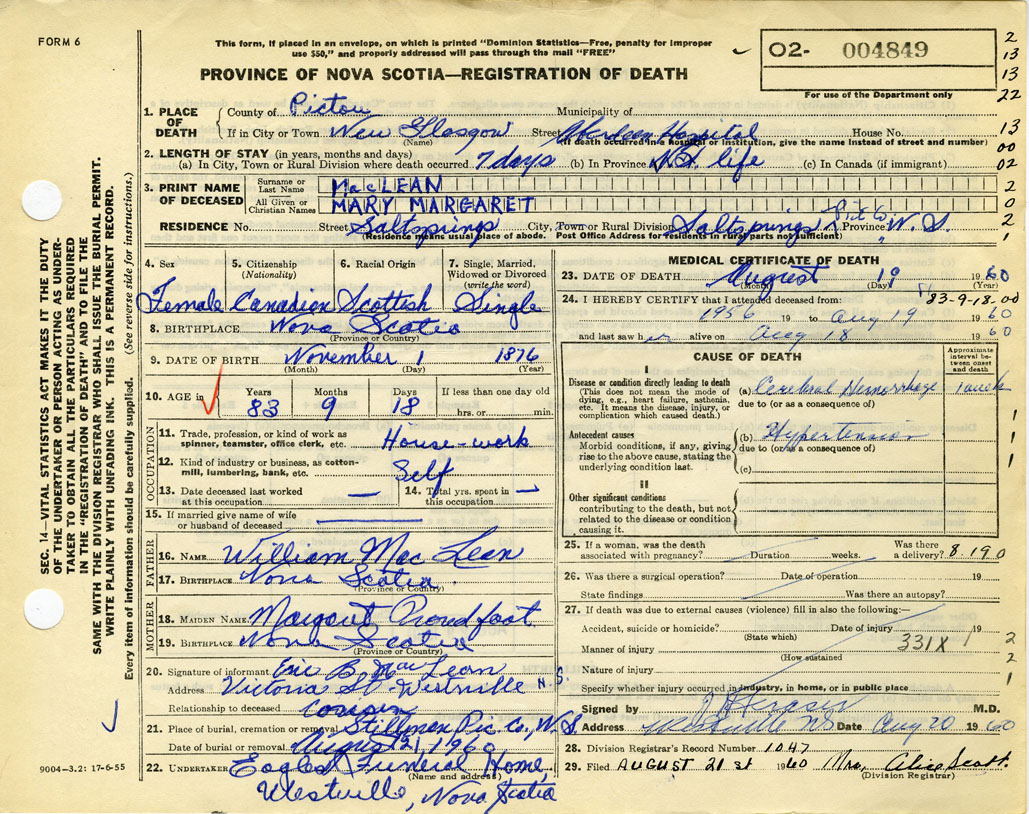 FORM 6
This form, if placed in an envelope, on which is printed "Dominion Statistics—Free, penalty for improper
use $50," and properly addressed will pass through the mail "FREE"
PROVINCE OF NOVA SCOTIA—REGISTRATION OF DEATH
O2- 004849
For use of the Department only
2
13
13
22
13
00
02
2
0
2
1
SEC. 14—VITAL STATISTICS ACT MAKES IT THE DUTY
OF THE UNDERTAKER OR PERSON ACTING AS UNDER-
TAKER TO OBTAIN ALL THE PARTICULARS REQUIRED
IN THE "REGISTRATION OF DEATH" AND TO FILE THE
SAME WITH THE DIVISION REGISTRAR WHO SHALL ISSUE THE BURIAL PERMIT.
WRITE PLAINLY WITH UNFADING INK. THIS IS A PERMANENT RECORD.
Every item of information should be carefully supplied. (See reverse side for instructions.)
1. PLACE OF DEATH
County of Pictou Municipality of
If in City or Town New Glasgow Street Aberdeen Hospital House No.
(Name) (If death occurred in a hospital or institution, give the name instead of street and number)
2. LENGTH OF STAY (in years, months and days)
(a) In City, Town or Rural Division where death occurred 7 days (b) In Province N.S. life (c) In Canada (if immigrant)
3. PRINT NAME OF DECEASED
Surname or Last Name MacLEAN
All Given or Christian Names MARY MARGARET
RESIDENCE No. Street Saltsprings City, Town or Rural Division Saltsprings Pict Co Province N.S.
(Residence means usual place of abode. Post Office Address for residents in rural parts not sufficient)
4. Sex 5. Citizenship (Nationality) 6. Racial Origin 7. Single, Married, Widowed or Divorced (write the word)
Female Canadian Scottish Single
8. BIRTHPLACE Nova Scotia
(Province or Country)
9. DATE OF BIRTH November 1 1876
(Month) (Day) (Year)
10. AGE in Years Months Days If less than one day old
83 9 18 hrs. or min.
OCCUPATION
11. Trade, profession, or kind of work as spinner, teamster, office clerk, etc. House-work
12. Kind of industry or business, as cotton-mill, lumbering, bank, etc. Self
13. Date deceased last worked at this occupation — 14. Total yrs. spent in this occupation —
15. If married give name of wife or husband of deceased
FATHER
16. NAME William MacLean
17. BIRTHPLACE Nova Scotia
(Province or Country)
MOTHER
18. MAIDEN NAME Margaret Proudfoot
19. BIRTHPLACE Nova Scotia
(Province or Country)
20. Signature of informant Eric B. MacLean
Address Victoria St Westville N.S.
Relationship to deceased cousin
21. Place of burial, cremation or removal Stillman Pic Co, N.S.
Date of burial or removal August 21, 1960
22. UNDERTAKER Eagles Funeral Home,
(Name and address)
Westville, Nova Scotia
9004-3.2: 17-6-55
MEDICAL CERTIFICATE OF DEATH
23. DATE OF DEATH August 19 1960
(Month) (Day) (Year)
83-9-18.00
24. I HEREBY CERTIFY that I attended deceased from:
1956 19 to Aug 19 1960
and last saw her alive on Aug 18 1960
CAUSE OF DEATH
Approximate interval between onset and death
I
Disease or condition directly leading to death
(This does not mean the mode of dying, e.g., heart failure, asthenia, etc. It means the disease, injury, or complication which caused death.)
(a) Cerebral Hemorrhage 1 week
due to (or as a consequence of)
Antecedent causes
Morbid conditions, if any, giving rise to the above cause, stating the underlying condition last.
(b) Hypertension
due to (or as a consequence of)
(c)
II
Other significant conditions
contributing to the death, but not related to the disease or condition causing it.
1
1
1
25. If a woman, was the death associated with pregnancy? Duration weeks. Was there a delivery? 8.190
26. Was there a surgical operation? Date of operation 19
State findings Was there an autopsy?
27. If death was due to external causes (violence) fill in also the following:—
Accident, suicide or homicide? Date of injury 19
(State which)
Manner of injury 331X
(How sustained
Nature of injury
Specify whether injury occurred in industry, in home, or in public place
2
2
1
Signed by Fraser M.D.
Address Westville NS Date Aug 20 1960
28. Division Registrar's Record Number 1047
29. Filed AUGUST 21st 1960 Mrs. Alice Scott.
(Division Registrar)